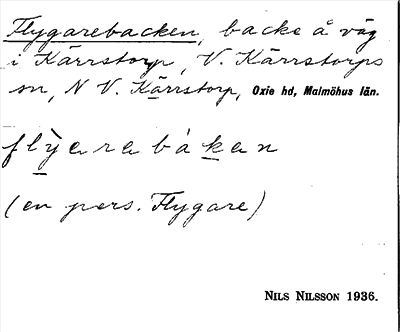 Flygarebacken, backe å väg
i Kärrstorp, V. Kärrstorps
sn, N V. Kärrstorp, Oxie hd, Malmöhus län.
flỳerebáken
(en pers. Flygare)
NILS NILSSON 1936.